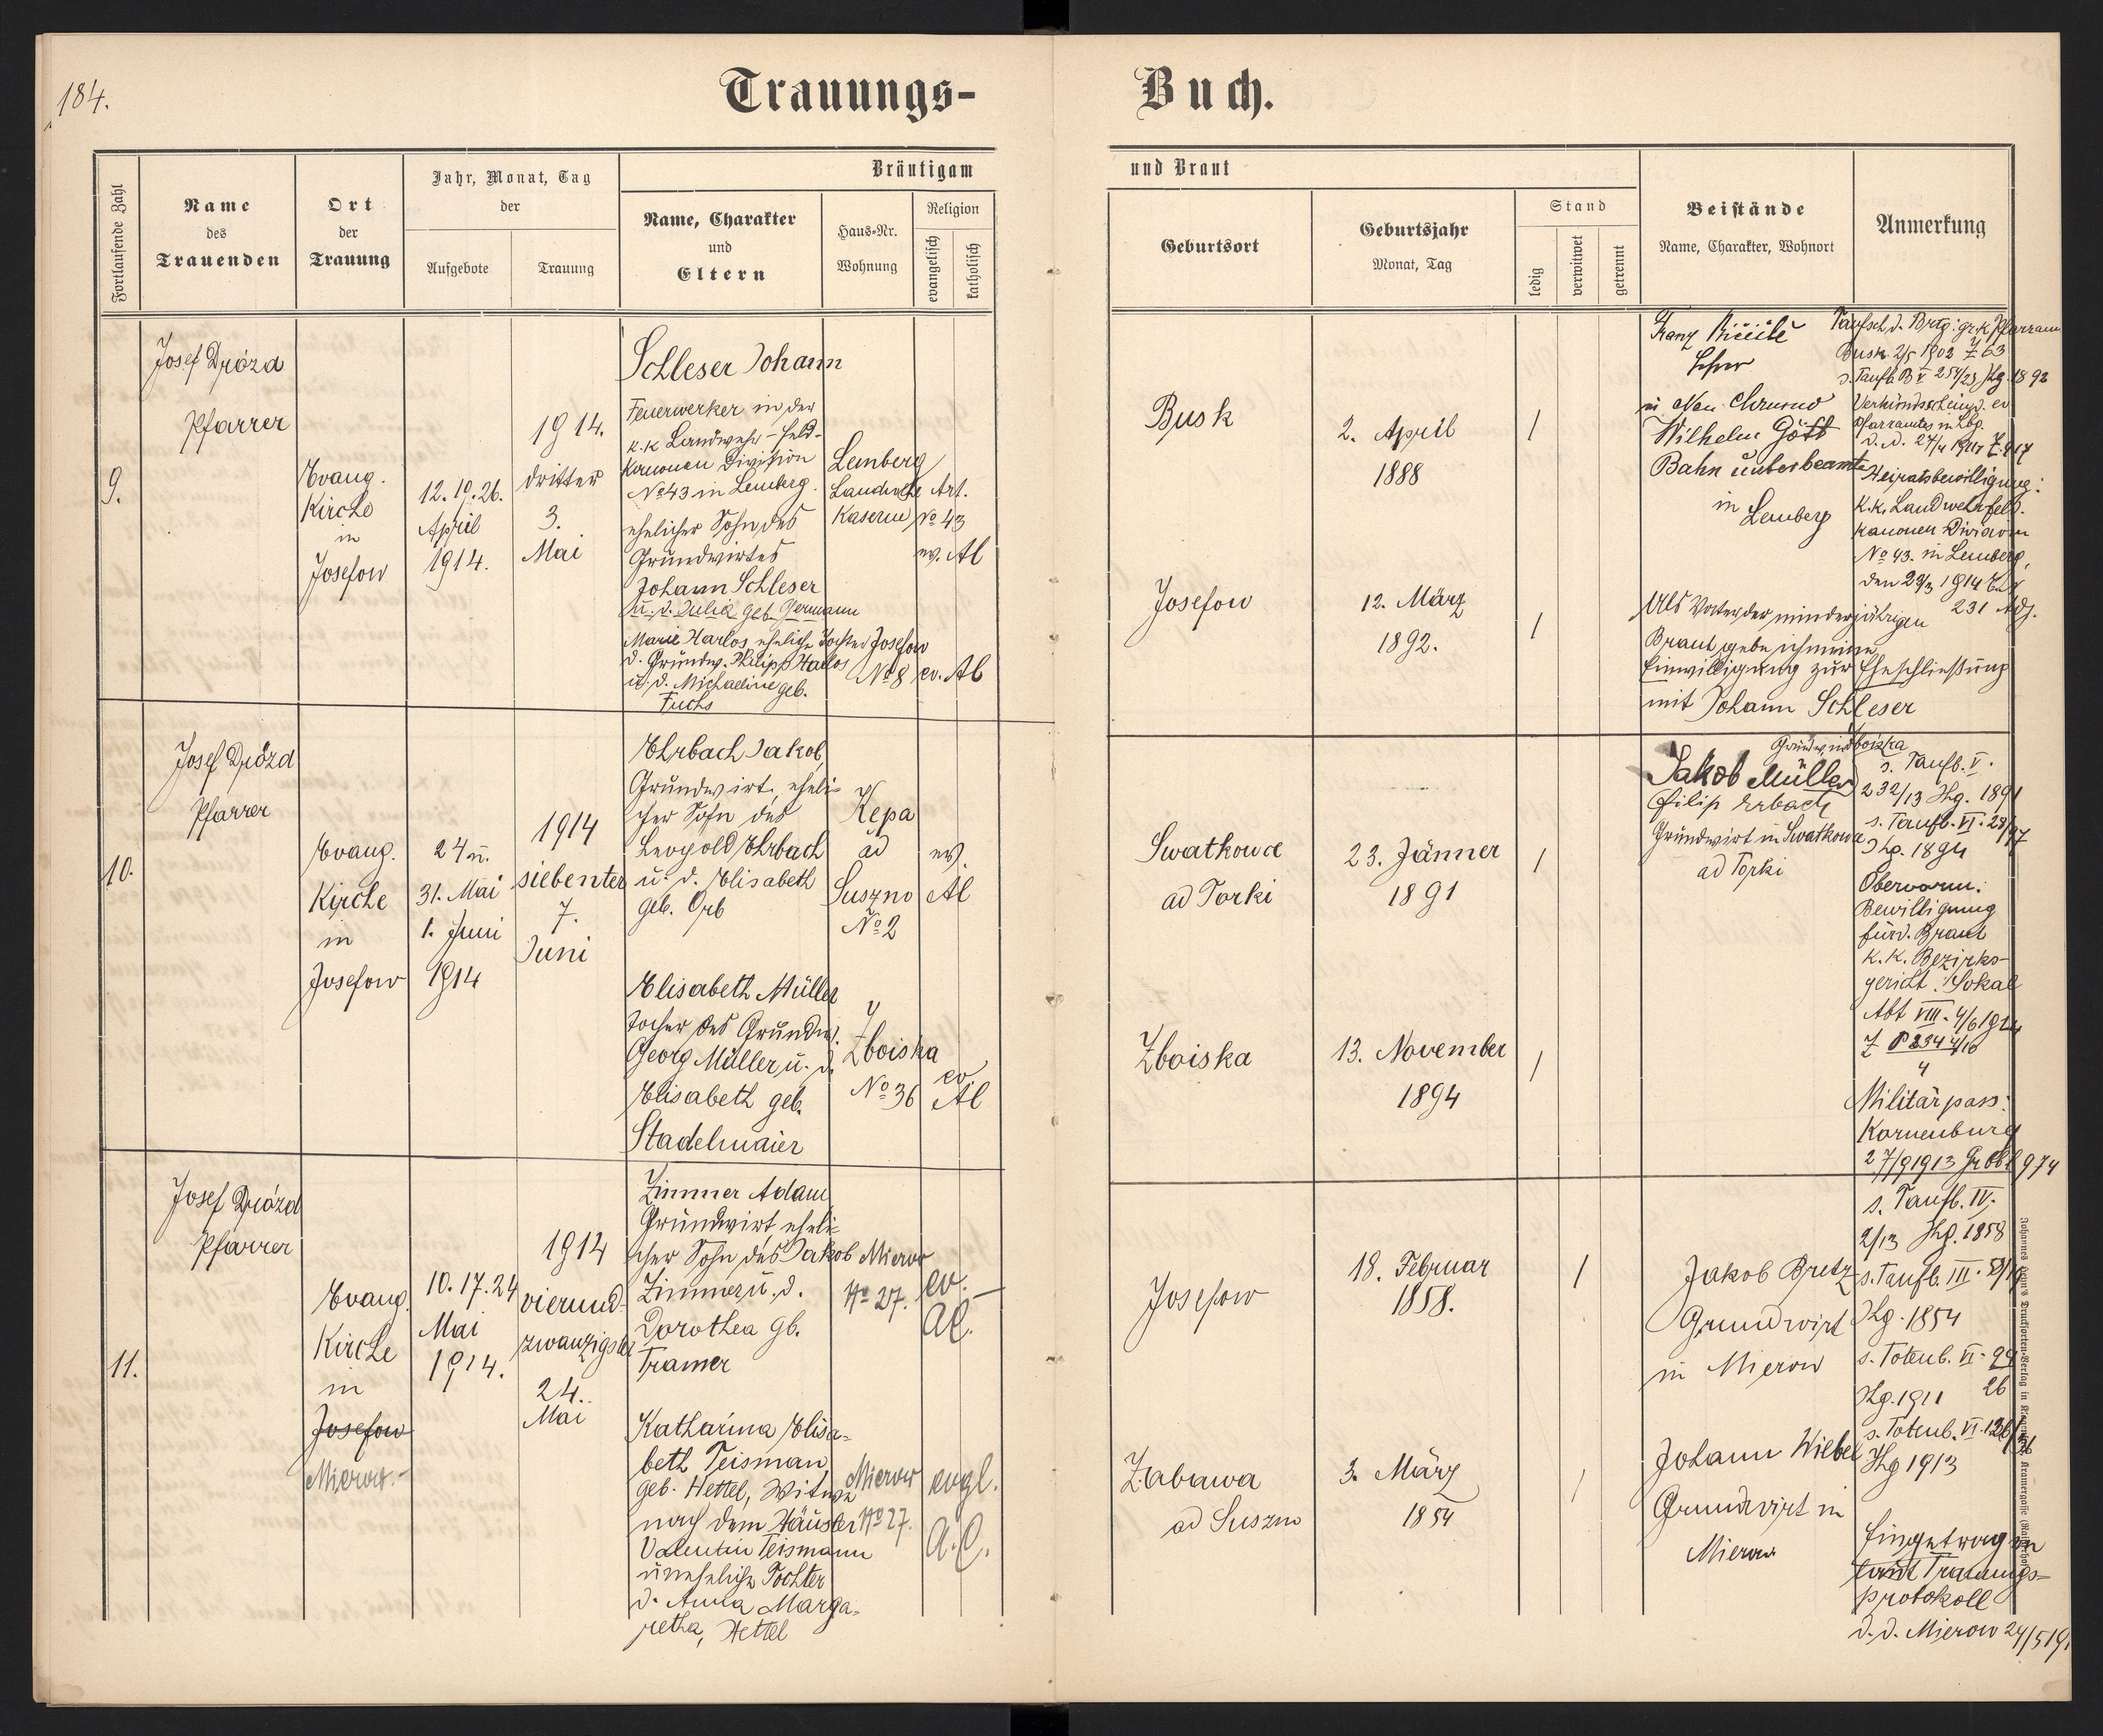 184.
Trauungs-
Buch.
Fortlaufende Zahl
Name
des
Trauenden
Ort
der
Trauung
Jahr, Monat, Tag
der
Aufgebote
Trauung
Bräutigam
Name, Charakter
und
Eltern
Haus-Nr.
Wohnung
Religion
evangelisch
katholisch
und Braut
Geburtsort
Geburtsjahr
Monat, Tag
Stand
ledig
verwitwet
getrennt
Beistände
Name, Charakter, Wohnort
Anmerkung
9.
Josef Drózd
Pfarrer
Evang.
Kirche
in
Josefow
12. 19. 26.
April
1914.
1914.
dritter
3.
Mai
Schleser Johann
Feuerwerker in der
k.k. Landwehr-Feld-
kanonen Division
No 43 in Lemberg.
ehelicher Sohn des
Grundwirtes
Johann Schleser
u. d. Julia geb. Germann
Lemberg
Landwehr Art.
Kaserne No 43
ev. AC
Marie Harlos eheliche Tochter
d. Grundw. Philipp Harlos
u. d. Michaeline geb.
Fuchs
Josefow
No 8
ev. AC
Busk
2. April
1888
Josefow
12. März
1892.
Franz
Lehrer
in Neu Chrusno
Wilhelm Gött
Bahnunterbeamte
in Lemberg
Als Vater der minderjährigen
Braut gebe ich meine
Einwilligung zur Eheschließung
mit Johann Schleser
Taufsch. d. Brtg: gr.k. Pfarramt
Busk 2/5 1902 Z 63
s. Taufb. B V 254/23 Jhg. 1892
Verkündschein d. ev
Pfarramtes in Lbg.
d.d. 27/4 1914 Z. 917
Heiratsbewilligung:
k.k. Landwehrfeld-
kanonen Division
No 43. in Lemberg,
den 23/3 1914
231 Adj.
10.
Josef Drózd
Pfarrer
Evang.
Kirche
in
Josefow
24 u.
31. Mai
1. Juni
1914
1914
siebenter
7.
Juni
Ehrbach Jakob,
Grundwirt, eheli-
cher Sohn des
Leopold Ehrbach
u. d. Elisabeth
geb. Orb
Kepa
ad
Suszno
No 2
ev.
AC
Elisabeth Müller
Tocher des Grundw.
Georg Müller u. d.
Elisabeth geb.
Stadelmaier
Zboiska
No 36
ev
AC
Swatkowce
ad Torki
23. Jänner
1891
Zboiska
13. November
1894
Grundw. in Zboiska
Jakob Müller
Filip Erbach
Grundwirt in Swatkowce
ad Torki
s. Taufb. V.
232/13 Jhg. 1891
s. Taufb. VI. 28/97
Jhg. 1894
Obervorm.
Bewilligung
für d. Braut
k.k. Bezirks-
gericht: Sokal
Abt VIII. 4/6 1914
Z P 234/10
4
Militärpass:
Korneuburg
27/9 1913 Grbbl 974
11.
Josef Drózd
Pfarrer
Evang.
Kirche
in
Josefow
Mierow.-
10. 17. 24
Mai
1914.
1914
vierund-
zwanzigster
24.
Mai
Zimmer Adam
Grundwirt eheli-
cher Sohn des Jakob
Zimmer u. d.
Dorothea gb.
Tramer
Mierow
No 27.
ev.
AC.
Katharina Elisa-
beth Teisman
geb. Hettel, Witwe
nach dem Häusler
Valentin Teismann
uneheliche Tochter
d. Anna Marga-
retha, Hettel
Mierow
No 27.
evgl.
A.C.
Josefow
18. Februar
1858.
Zabawa
ad Suszno
3. März
1854
Jakob Bretz
Grundwirt
in Mierow
Johann Wiebel
Grundwirt in
Mierow
s. Taufb. IV.
2/13 Jhg. 1858
s. Taufb. III.
Jhg. 1854
s. Totenb. VI. 99
Jhg. 1911 26
s. Totenb. VI.
Jhg 1913
Eingetragen
laut Trauungs-
protokoll
d. d. Mierow 24/5 191